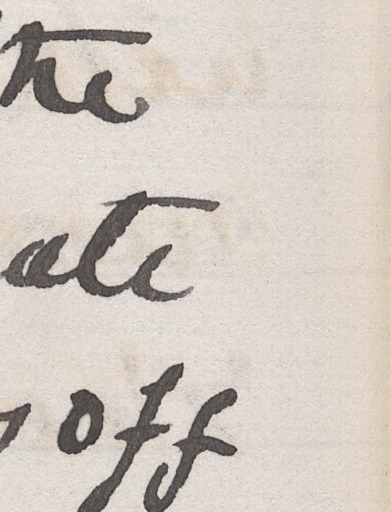 the
ate
off